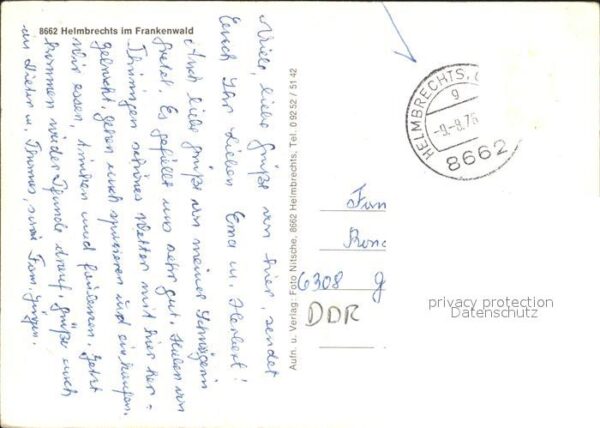 8662 Helmbrechts im Frankenwald
Viele, liebe Grüße von hier, sendet
Euch Ihr Lieben Erna u. Herbert!
Auch liebe Grüße von meiner Schwägerin
Es gefällt uns sehr gut. Haben von
Thüringen schönes Wetter mit hier her=
gebracht, gehen auch spazieren und einkaufen.
Wir essen, trinken und faulenzen. Jetzt
kommen wieder Pfunde drauf. Grüße auch
an Dieter u. Thomas, sowie Fam.
Aufn. u. Verlag: Foto Nitsche, 8662 Helmbrechts, Tel. 0 92 52 / 51 42
HELMBRECHTS,
g
-9.-8.76
8662
Fam
6308 G
DDR
privacy protection
Datenschutz